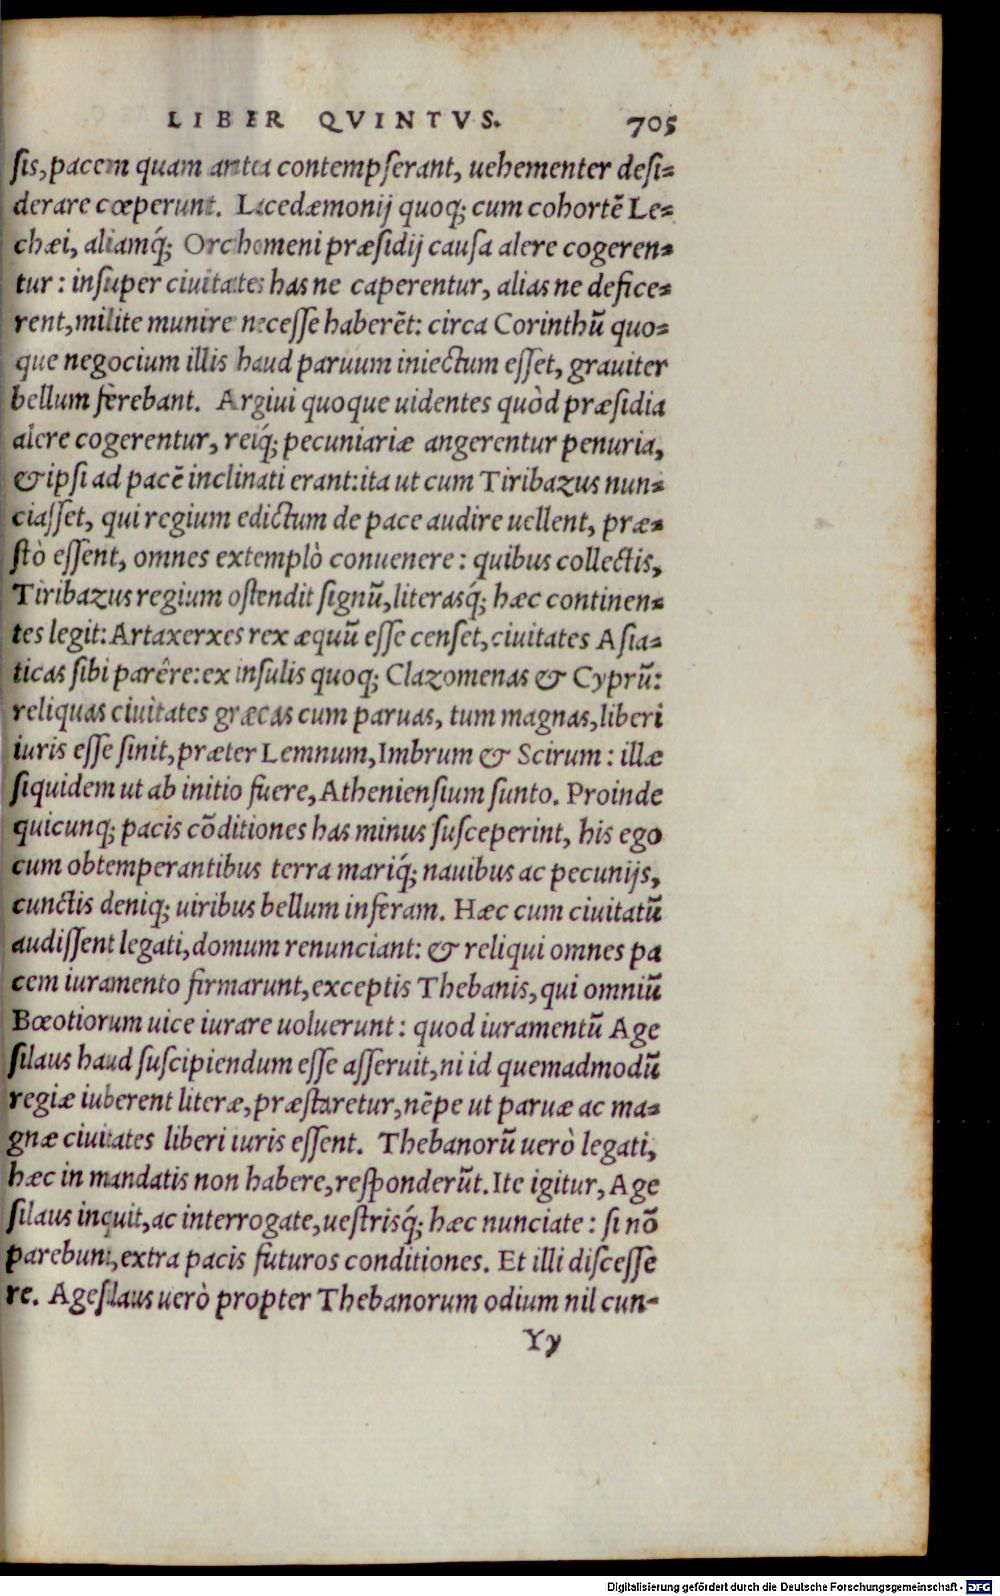 LIBER QVINTVS. 705
sis, pacem quam antea contempserant, uehementer desi-
derare cœperunt. Lacedæmonij quoq; cum cohortē Le-
chæi, aliamq́; Orchomeni præsidij causa alere cogeren-
tur: insuper ciuitates has ne caperentur, alias ne defice-
rent, milite munire necesse haberēt: circa Corinthū quo-
que negocium illis haud paruum iniectum esset, grauiter
bellum ferebant. Argiui quoque uidentes quòd præsidia
alere cogerentur, reiq́; pecuniariæ angerentur penuria,
& ipsi ad pacē inclinati erant: ita ut cum Tiribazus nun-
ciasset, qui regium edictum de pace audire uellent, præ-
stò essent, omnes extemplò conuenere: quibus collectis,
Tiribazus regium ostendit signū, literasq́; hæc continen-
tes legit: Artaxerxes rex æquū esse censet, ciuitates Asia-
ticas sibi parêre: ex insulis quoq; Clazomenas & Cyprū:
reliquas ciuitates græcas cum paruas, tum magnas, liberi
iuris esse sinit, præter Lemnum, Imbrum & Scirum: illæ
siquidem ut ab initio fuere, Atheniensium sunto. Proinde
quicunq; pacis cōditiones has minus susceperint, his ego
cum obtemperantibus terra mariq́; nauibus ac pecunijs,
cunctis deniq; uiribus bellum inferam. Hæc cum ciuitatū
audissent legati, domum renunciant: & reliqui omnes pa
cem iuramento firmarunt, exceptis Thebanis, qui omniū
Bœotiorum uice iurare uoluerunt: quod iuramentū Age
silaus haud suscipiendum esse asseruit, ni id quemadmodū
regiæ iuberent literæ, præstaretur, nēpe ut paruæ ac ma-
gnæ ciuitates liberi iuris essent. Thebanorū uerò legati,
hæc in mandatis non habere, responderūt. Ite igitur, Age
silaus inquit, ac interrogate, uestrisq́; hæc nunciate: si nō
parebunt, extra pacis futuros conditiones. Et illi discesse
re. Agesilaus uerò propter Thebanorum odium nil cun-
Yy
Digitalisierung gefördert durch die Deutsche Forschungsgemeinschaft - DFG